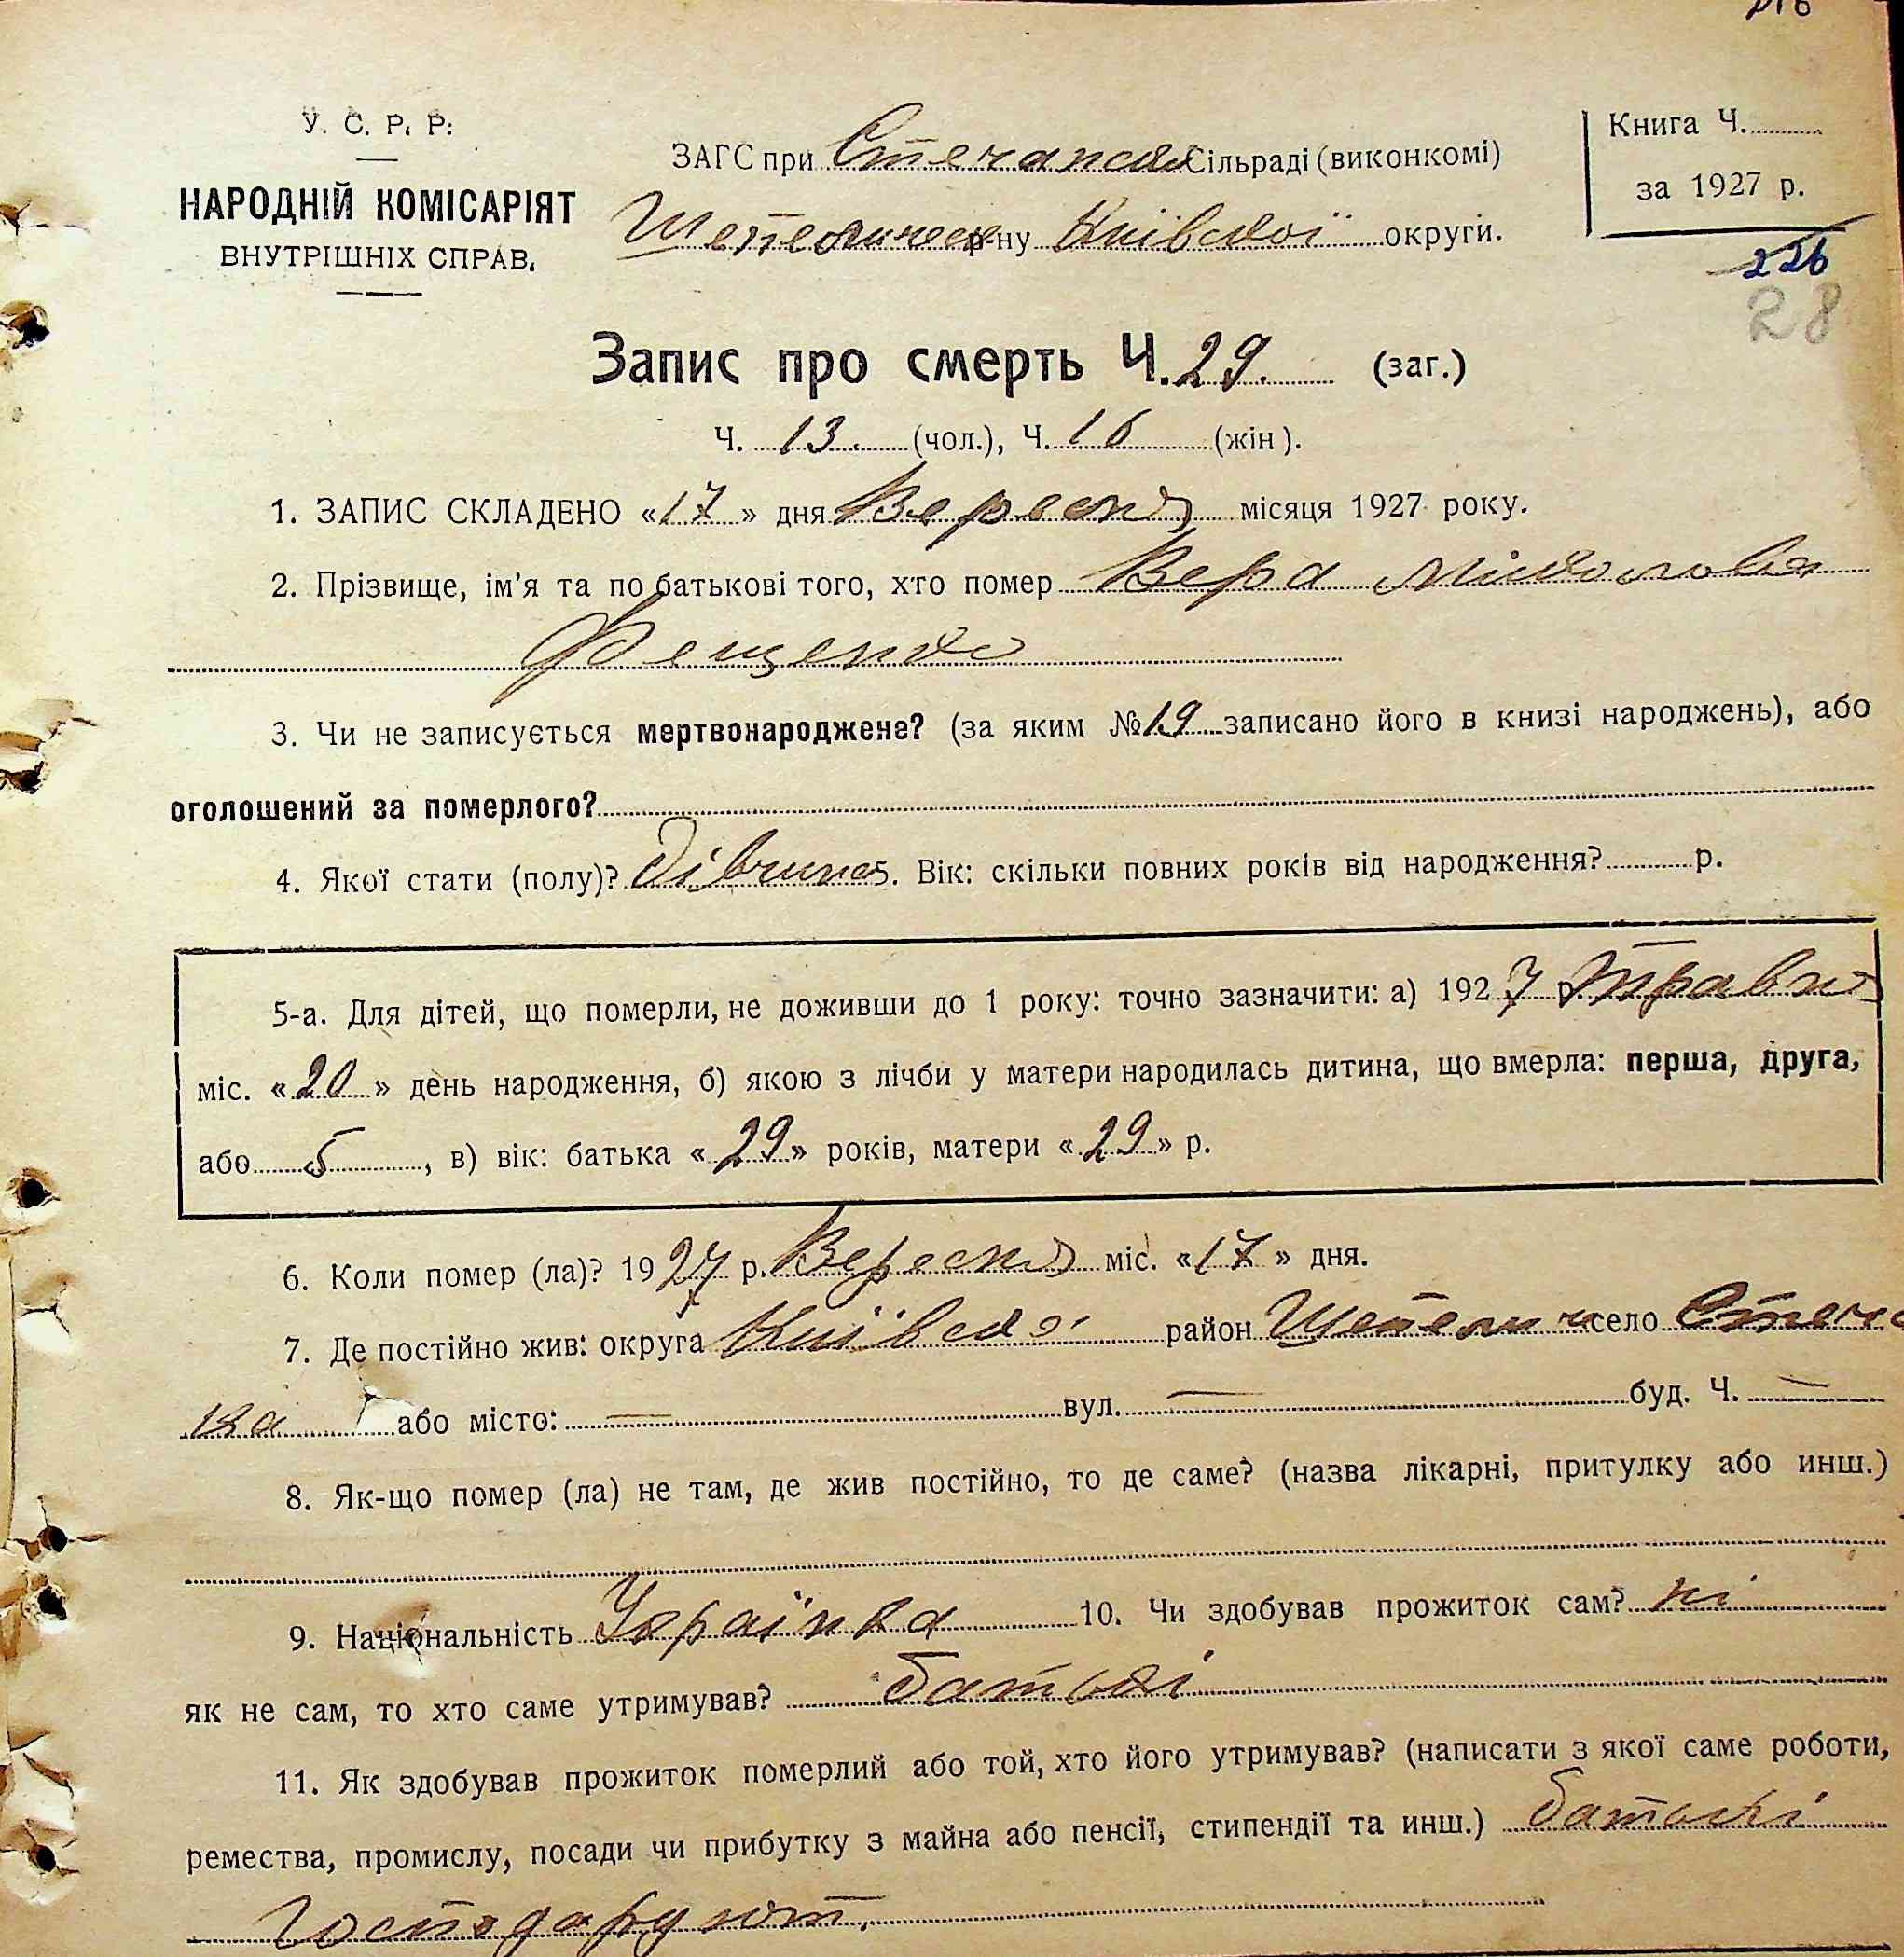 У. С. Р. Р.
НАРОДНІЙ КОМІСАРІЯТ
ВНУТРІШНІХ СПРАВ.
ЗАГС при Стечанській Сільраді (виконкомі)
Шепелицьк р-ну Київської округи.
Книга Ч.
за 1927 р.
226
28
Запис про смерть Ч. 29. (заг.)
Ч. 13. (чол.), Ч. 16 (жін).
1. ЗАПИС СКЛАДЕНО «17» дня Вересня місяця 1927 року.
2. Прізвище, ім'я та по батькові того, хто помер Вера Миколова
Фещенко
3. Чи не записується мертвонароджене? (за яким № 19 записано його в книзі народжень), або
оголошений за померлого?
4. Якої стати (полу)? Дівчина 5. Вік: скільки повних років від народження? р.
5-а. Для дітей, що померли, не доживши до 1 року: точно зазначити: а) 1927 р. Травня
міс. «20» день народження, б) якою з лічби у матери народилась дитина, що вмерла: перша, друга,
або 5, в) вік: батька «29» років, матери «29» р.
6. Коли помер (ла)? 1927 р. Вересня міс. «17» дня.
7. Де постійно жив: округа Київсько район Шепелич село Стечан
ка або місто: — вул. — буд. Ч. —
8. Як-що помер (ла) не там, де жив постійно, то де саме? (назва лікарні, притулку або инш.)
9. Національність Українка 10. Чи здобував прожиток сам? ні
як не сам, то хто саме утримував? батькі
11. Як здобував прожиток померлий або той, хто його утримував? (написати з якої саме роботи,
ремества, промислу, посади чи прибутку з майна або пенсії, стипендії та инш.) батькі
господаруют.